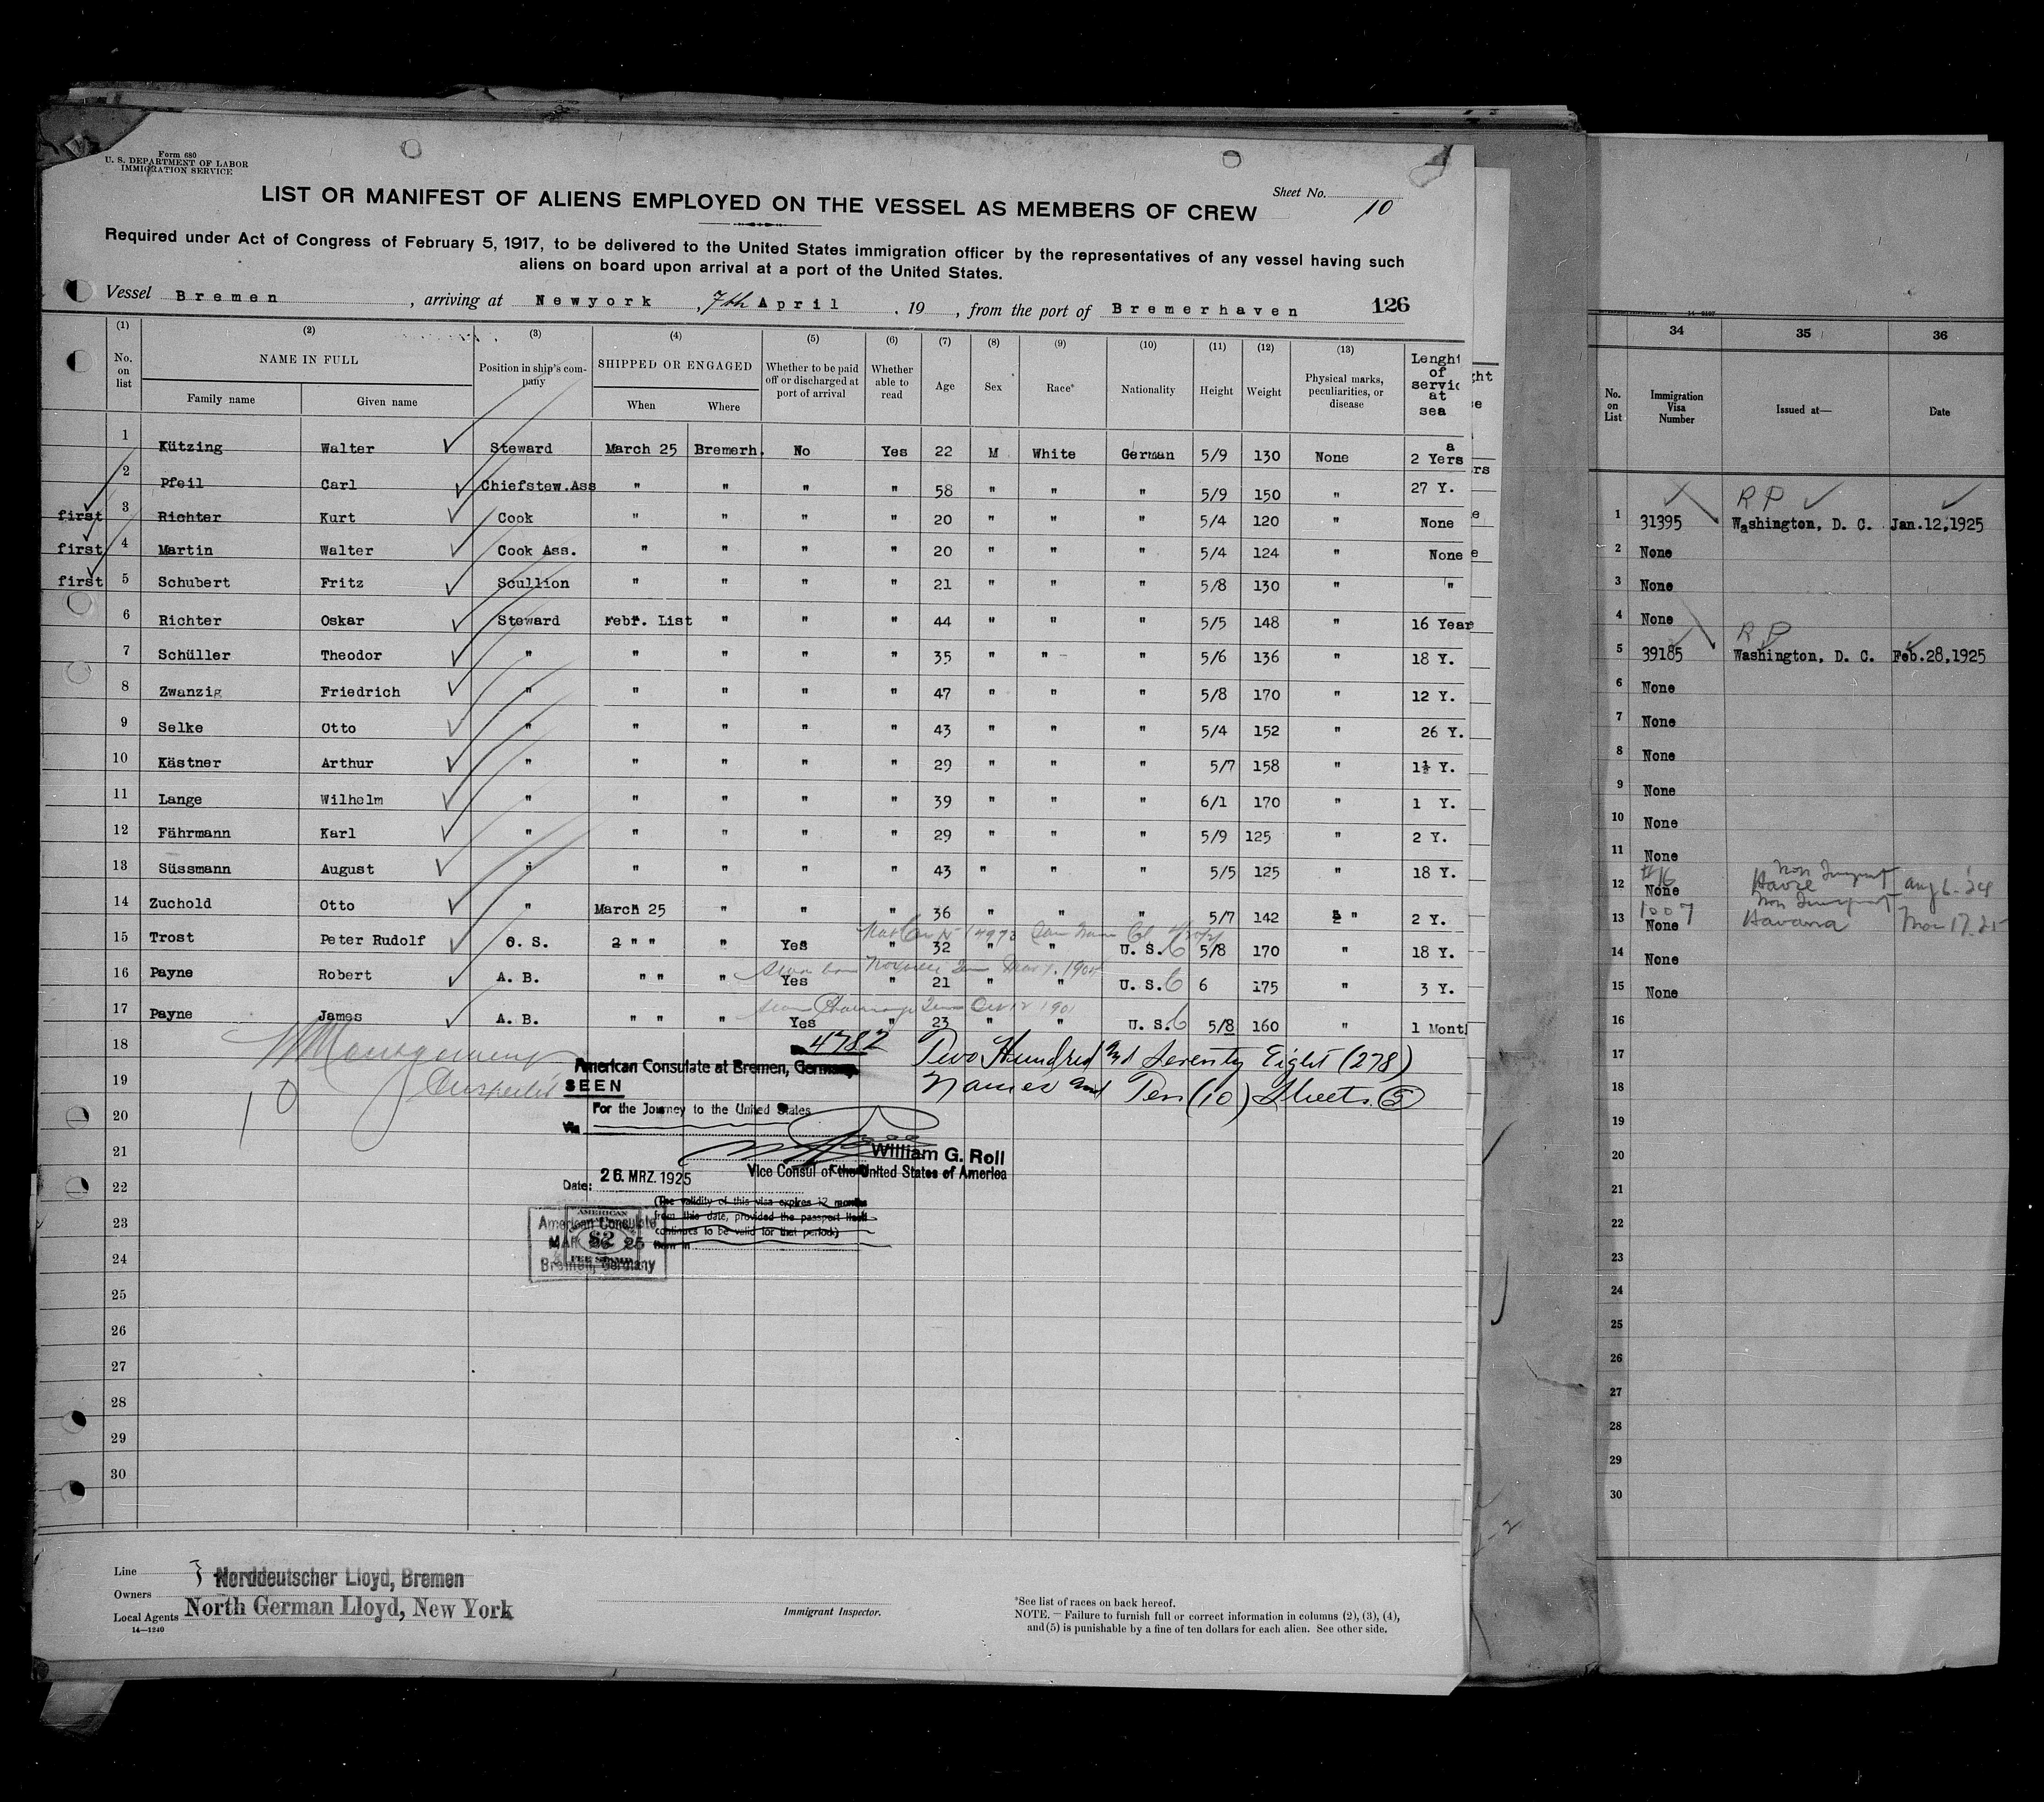 Form 680
U. S. DEPARTMENT OF LABOR
IMMIGRATION SERVICE
Sheet No. 10
LIST OR MANIFEST OF ALIENS EMPLOYED ON THE VESSEL AS MEMBERS OF CREW
Required under Act of Congress of February 5, 1917, to be delivered to the United States immigration officer by the representatives of any vessel having such
aliens on board upon arrival at a port of the United States.
Vessel Bremen, arriving at Newyork, 7th April, 19 , from the port of Bremerhaven 126
(1) (2) (3) (4) (5) (6) (7) (8) (9) (10) (11) (12) (13)
No. on list NAME IN FULL Family name Given name Position in ship's company SHIPPED OR ENGAGED When Where Whether to be paid off or discharged at port of arrival Whether able to read Age Sex Race* Nationality Height Weight Physical marks, peculiarities, or disease Lenght of servic at sea
1 Kützing Walter Steward March 25 Bremerh. No Yes 22 M White German 5/9 130 None a 2 Yers
2 Pfeil Carl Chiefstew.Ass " " " " 58 " " " 5/9 150 " 27 Y.
first 3 Richter Kurt Cook " " " " 20 " " " 5/4 120 " None
first 4 Martin Walter Cook Ass. " " " " 20 " " " 5/4 124 " None
first 5 Schubert Fritz Scullion " " " " 21 " " " 5/8 130 " "
6 Richter Oskar Steward Febr. List " " " 44 " " " 5/5 148 " 16 Year
7 Schüller Theodor " " " " " 35 " " " 5/6 136 " 18 Y.
8 Zwanzig Friedrich " " " " " 47 " " " 5/8 170 " 12 Y.
9 Selke Otto " " " " " 43 " " " 5/4 152 " 26 Y.
10 Kästner Arthur " " " " " 29 " " " 5/7 158 " 1½ Y.
11 Lange Wilhelm " " " " " 39 " " " 6/1 170 " 1 Y.
12 Fährmann Karl " " " " " 29 " " " 5/9 125 " 2 Y.
13 Süssmann August " " " " " 43 " " " 5/5 125 " 18 Y.
14 Zuchold Otto " March 25 " " " 36 " " " 5/7 142 " 2 Y.
15 Trost Peter Rudolf O. S. " " " Yes " 32 " " U. S. 5/8 170 " 18 Y.
16 Payne Robert A. B. " " " Yes " 21 " " U. S. 6 175 " 3 Y.
17 Payne James A. B. " " " Yes " 23 " " U. S. 5/8 160 " 1 Mont
18
19
20
21
22
23
24
25
26
27
28
29
30
W Montgomery
Inspector
10
4782
Two Hundred and Seventy Eight (278)
Names and Ten (10) Sheets
American Consulate at Bremen, Germany.
SEEN
For the Journey to the United States
Via
William G. Roll
Vice Consul of the United States of America
Date: 26. MRZ. 1925
(The validity of this visa expires 12 months
from this date, provided the passport itself
continues to be valid for that period)
American Consulate
MAR 26 25
Bremen, Germany
AMERICAN
$2
FEE STAMP
Line Norddeutscher Lloyd, Bremen
Owners
Local Agents North German Lloyd, New York
14—1240
Immigrant Inspector.
*See list of races on back hereof.
NOTE.—Failure to furnish full or correct information in columns (2), (3), (4),
and (5) is punishable by a fine of ten dollars for each alien. See other side.
34 35 36
No. on List Immigration Visa Number Issued at— Date
R P
1 31395 Washington, D. C. Jan.12,1925
2 None
3 None
4 None
R P
5 39185 Washington, D. C. Feb.28,1925
6 None
7 None
8 None
9 None
10 None
11 None
12 None Havre Aug 6-24
13 None Havana Mar 17.25
14 None
15 None
16
17
18
19
20
21
22
23
24
25
26
27
28
29
30